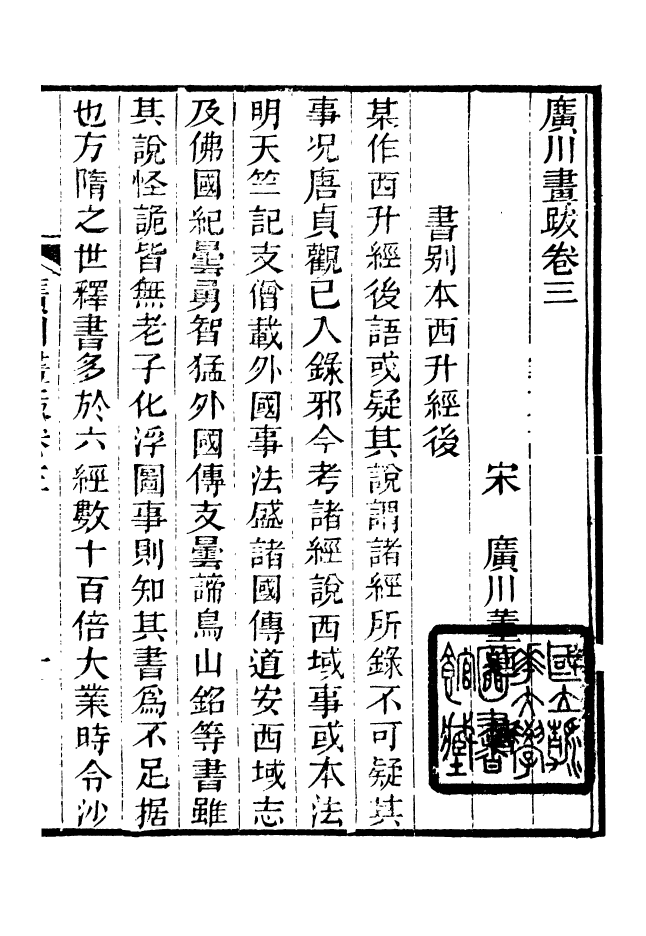 廣川畫跋卷三
宋　廣川董
書別本西升經後
某作西升經後語或疑其說謂諸經所錄不可疑其
事况唐貞觀已入錄邪今考諸經說西域事或本法
明天竺記支僧載外國事法盛諸國傳道安西域志
及佛國紀曇勇智猛外國傳支曇諦烏山銘等書雖
其說怪詭皆無老子化浮圖事則知其書爲不足据
也方隋之世釋書多於六經數十百倍大業時令沙
廣川畫跋卷三
國立
大學
圖書
館